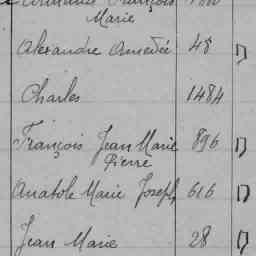 François
Marie
Alexandre Amedée 48 D
Charles 1484
François Jean Marie 896 D
Pierre
Anatole Marie Joseph 616 D
Jean Marie 28 D